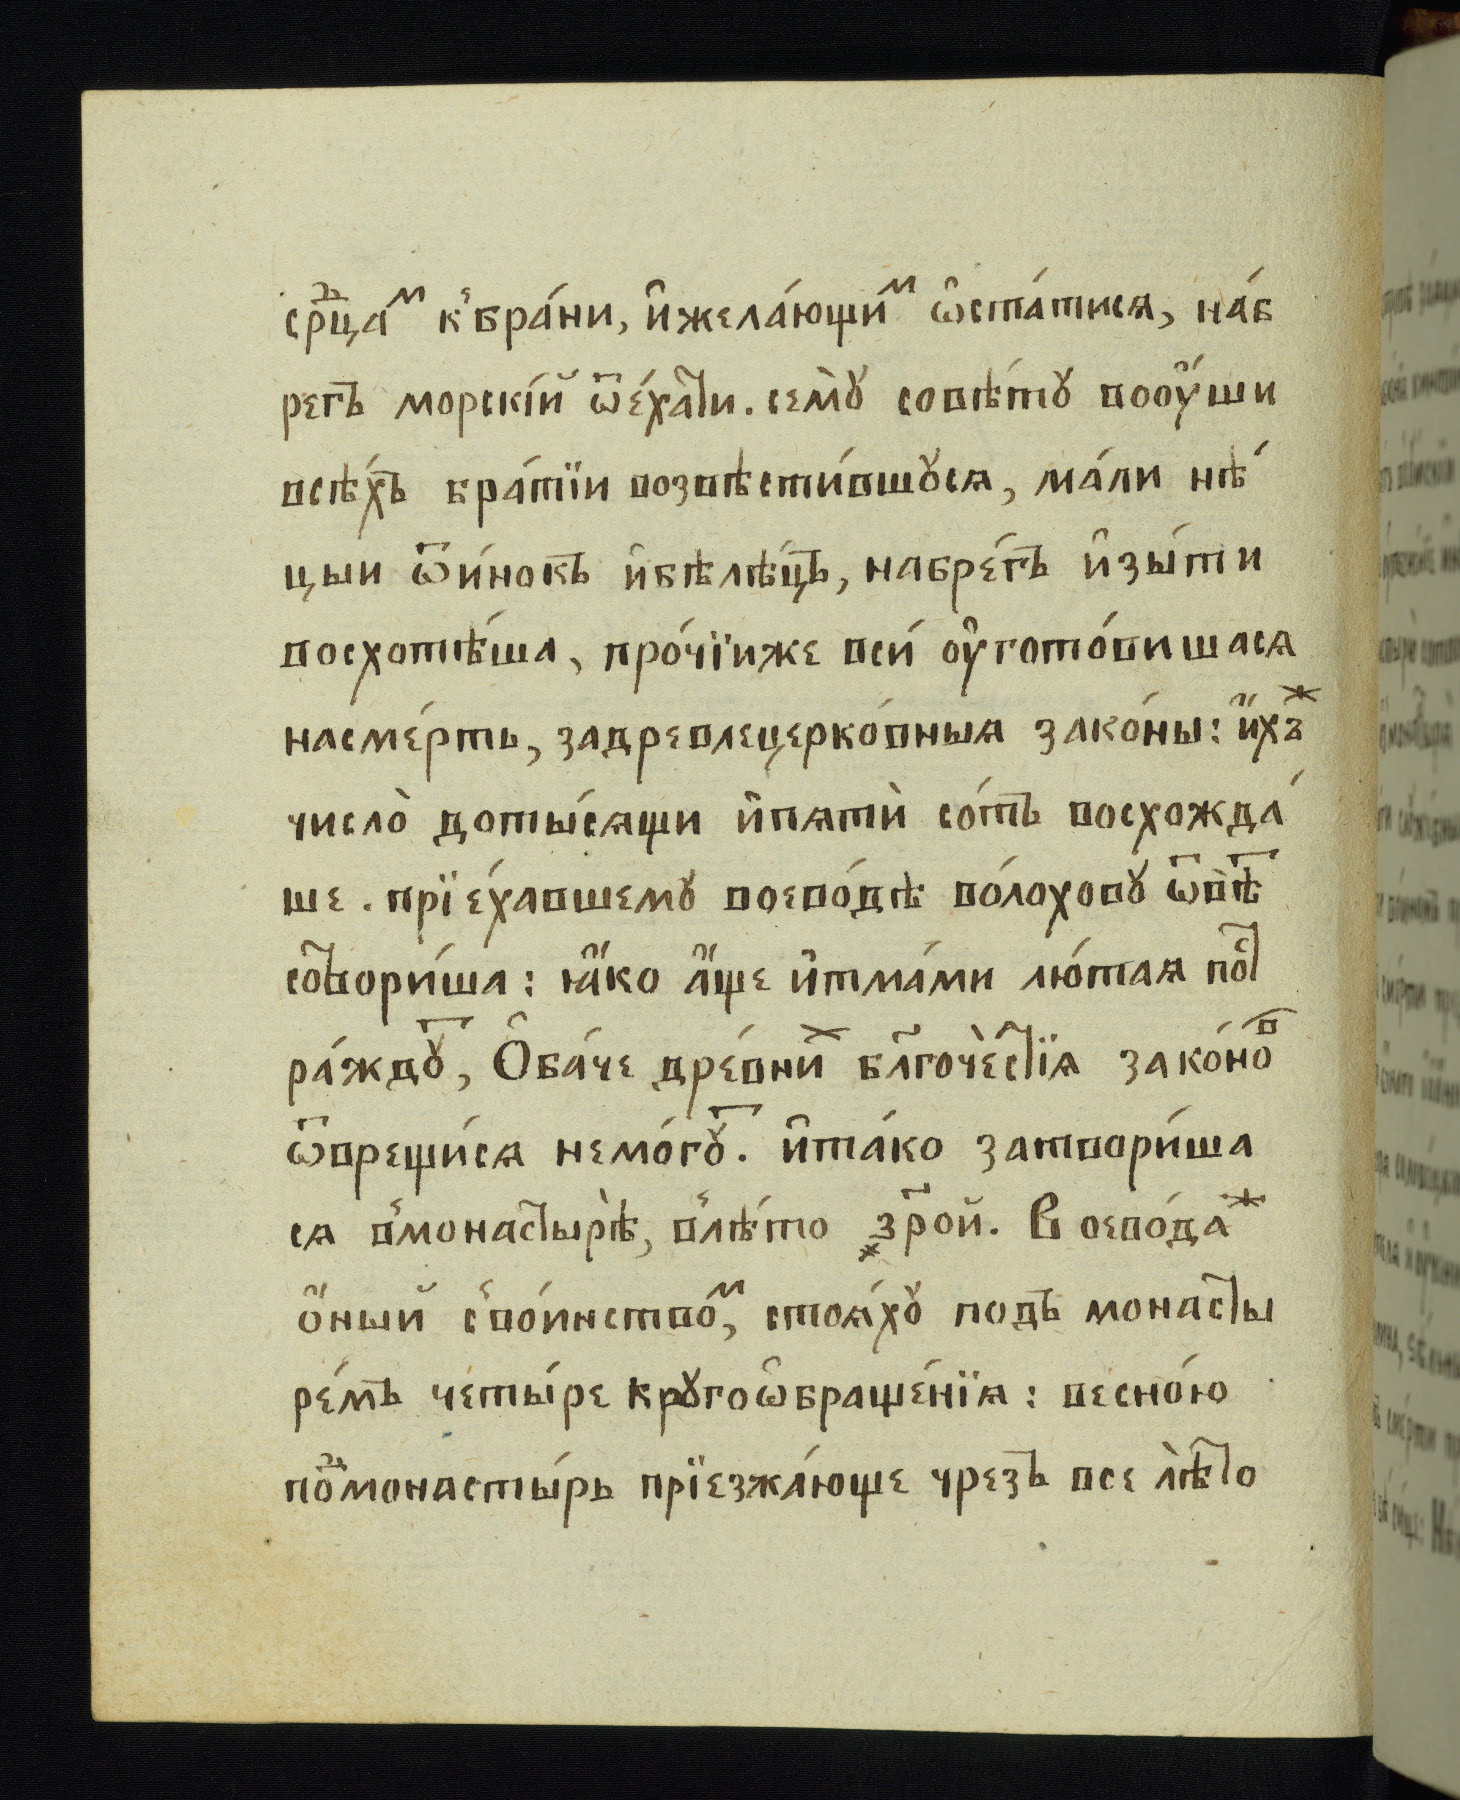 срⷣцаⷨ къ҆бра́ни, и҆жела́ющиⷨ ѡ҆ста́тися, на́б
регъ морскі́й ѿе́хаⷭ҇ти. семꙋ̀ совѣ́тꙋ воѹ҆́ши
всѣ́хъ бра́тїи возвѣсти́вшꙋся, ма́ли нѣ́
цыи ѿи́нокъ и҆бѣлѣ́цъ, набре́гъ и҆зы́ти
восхотѣ́ша, про́чїиже вси́ ѹ҆гото́вишася
насме́рть, задревлецерко́вныя зако́ны: и҆́хъⷤ
число̀ доты́сящи и҆пятѝ со́тъ восхожда́
ше. прїе́хавшемꙋ воево́дѣ во́лоховꙋ ѿвѣⷮ
соⷮвори́ша: ꙗ҆́ко а҆́ще и҆тма́ми лю́тая поⷭ҇т
ра́ждꙋⷮ, Ѻ҆ба́че дре́вниⷯ бл҃гоче́сⷭ҇тїя зако́ноⷡ
ѿврещи́ся немо́гꙋⷮ. и҆та́ко затвори́ша
ся въ҆монасты́рѣ̀, въ҆лѣ́то ҂зр҃ой. Воево́даⷤ
о҆́ный съ҆во́инствоⷨ, стоя́хꙋ подъ монасты
ре́мъ четы́ре крꙋгоѡ҆браще́нїя: весно́ю
поⷣмонасты́рь прїезжа́юще чрезъ все лѣ́то